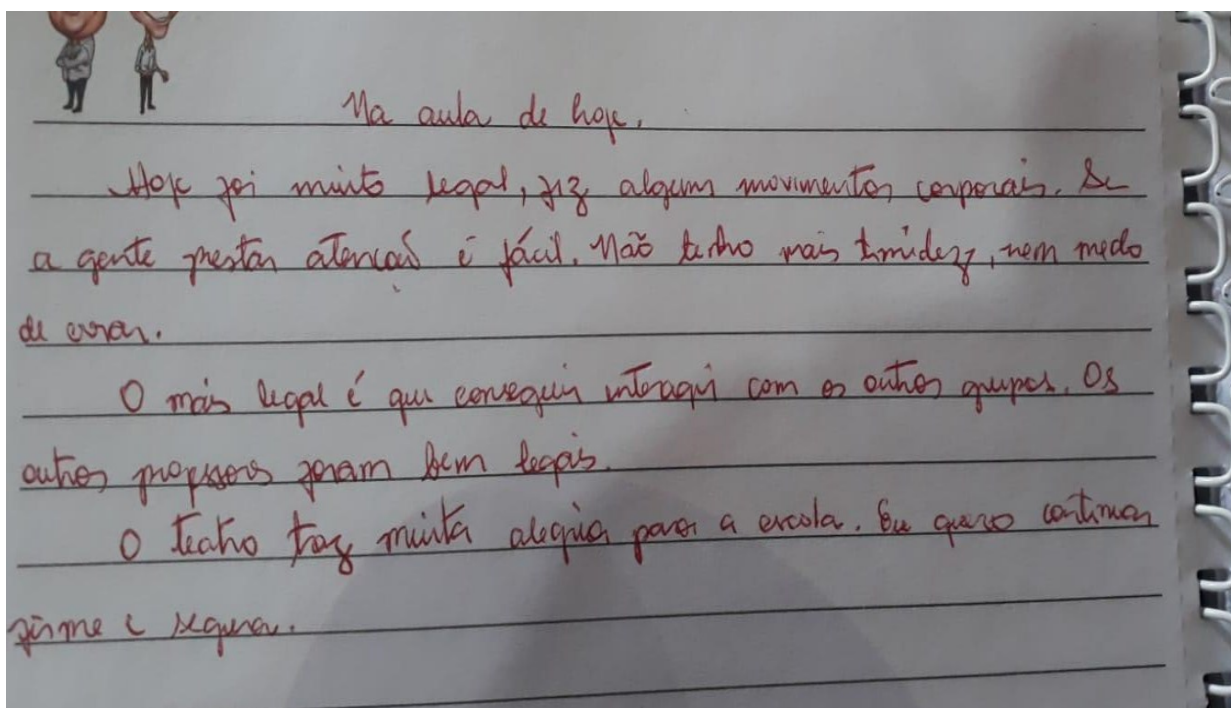 Na aula de hoje.
Hoje foi muito legal, fiz algum movimentos corporais. Se
a gente prestar atencaõ é fácil. Não tenho mais timidez, nem medo
de errar.
O mais legal é que conseguir interagir com os outros grupos. Os
outros professores foram bem legais.
O teatro traz muita alegria para a escola. Eu quero continuar
firme e segura.